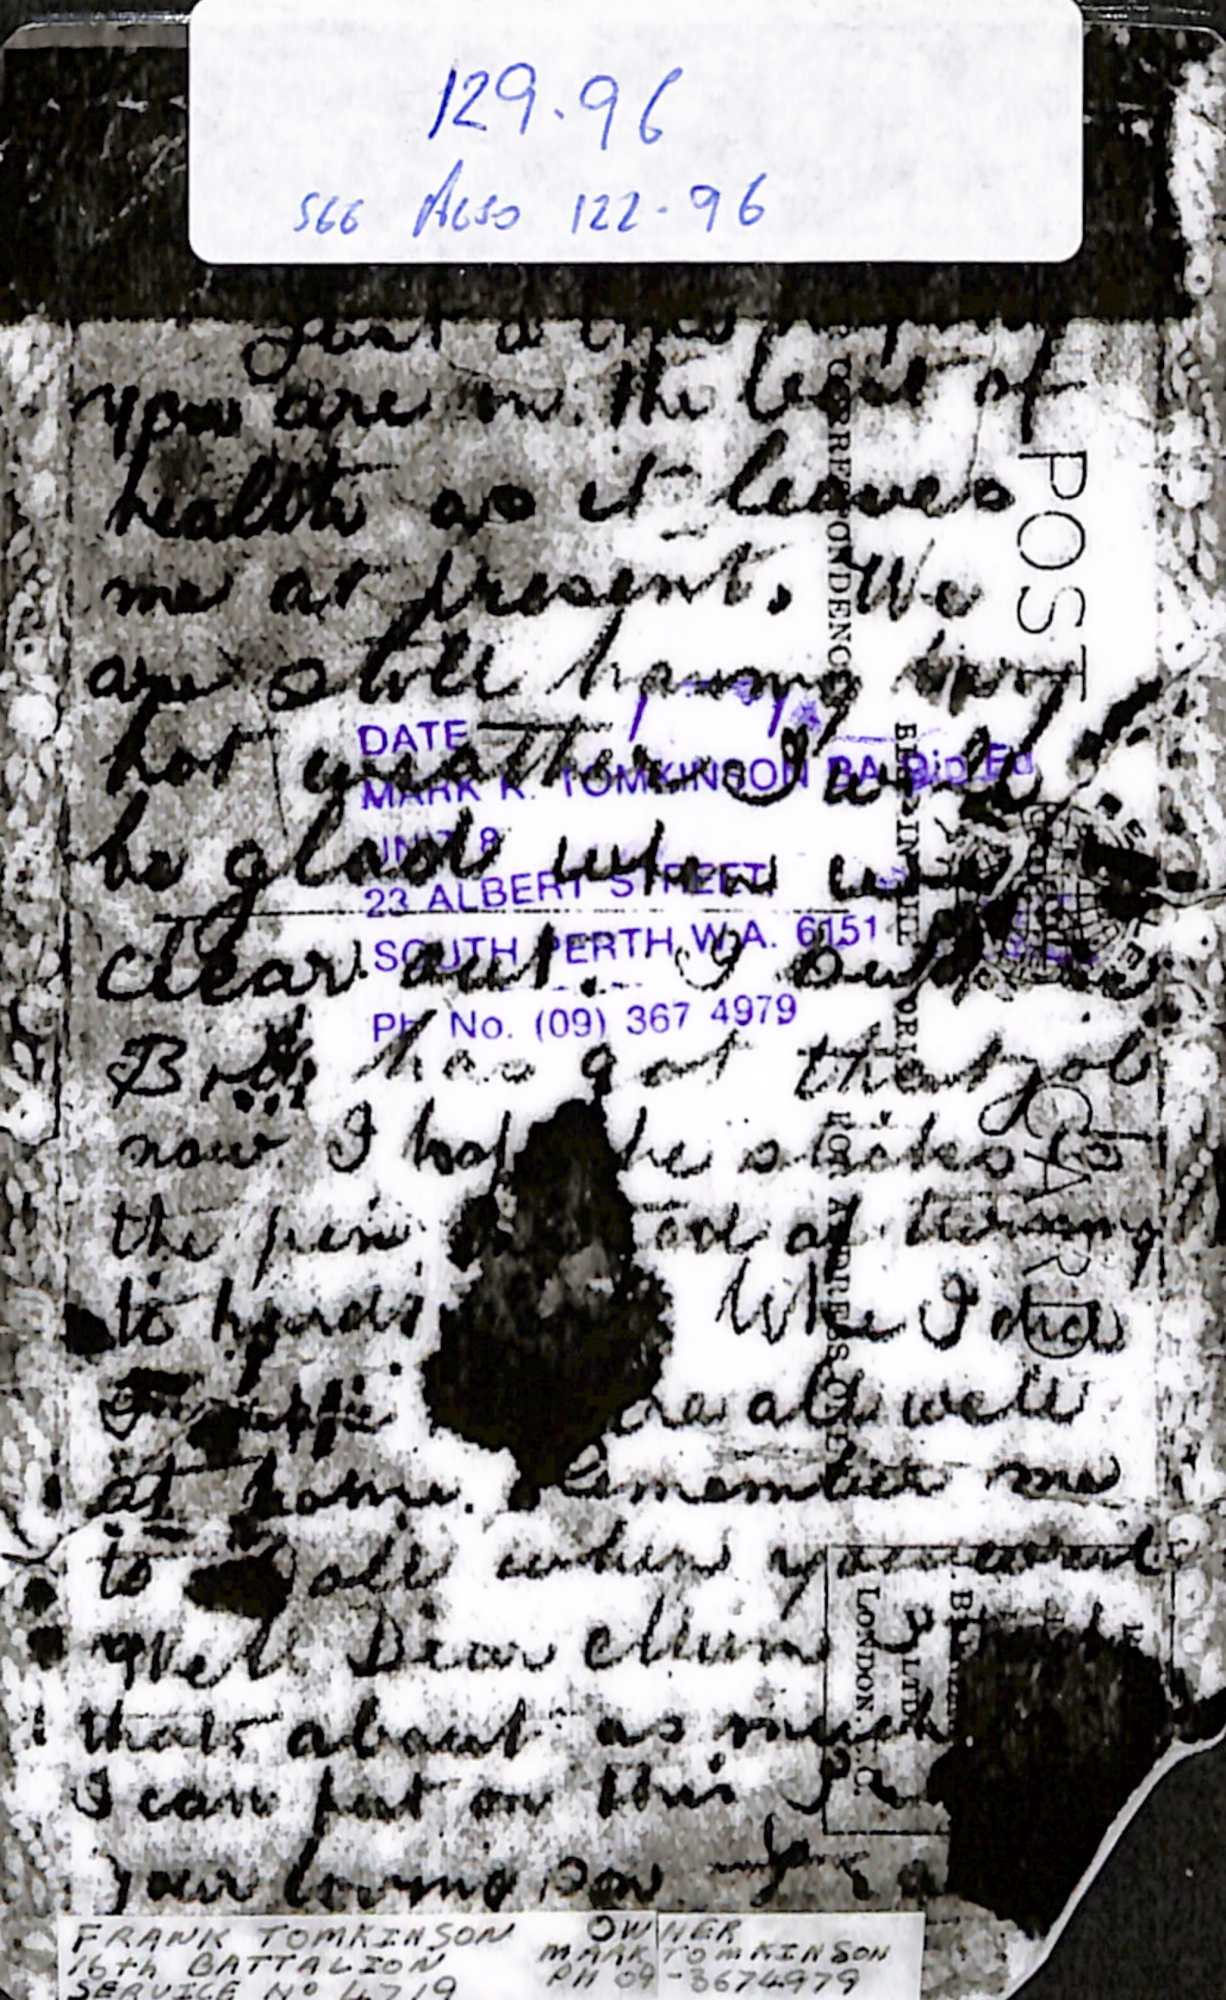 129.96
see Also 122-96
Just a
you are in the best of
health as it leaves
me at present. We
are still having
hot weather I will
be glad when we
clear out. I
has got that job
now I hope he sticks
the pen of turning
to While I did
are all well
at home. Remember me
to all when you
Well Dear Mum
thats about as much
I can put on this
your loving son
POST CARD
CORRESPONDENCE
FOR ADDRESS
LTD
LONDON
DATE
MARK K. TOMKINSON BA Dip Ed
UNIT 8
23 ALBERT STREET
SOUTH PERTH W.A. 6151
Ph No. (09) 367 4979
FRANK TOMKINSON
16th BATTALION
SERVICE No 4719
OWNER
MARK TOMKINSON
PH 09-3674979